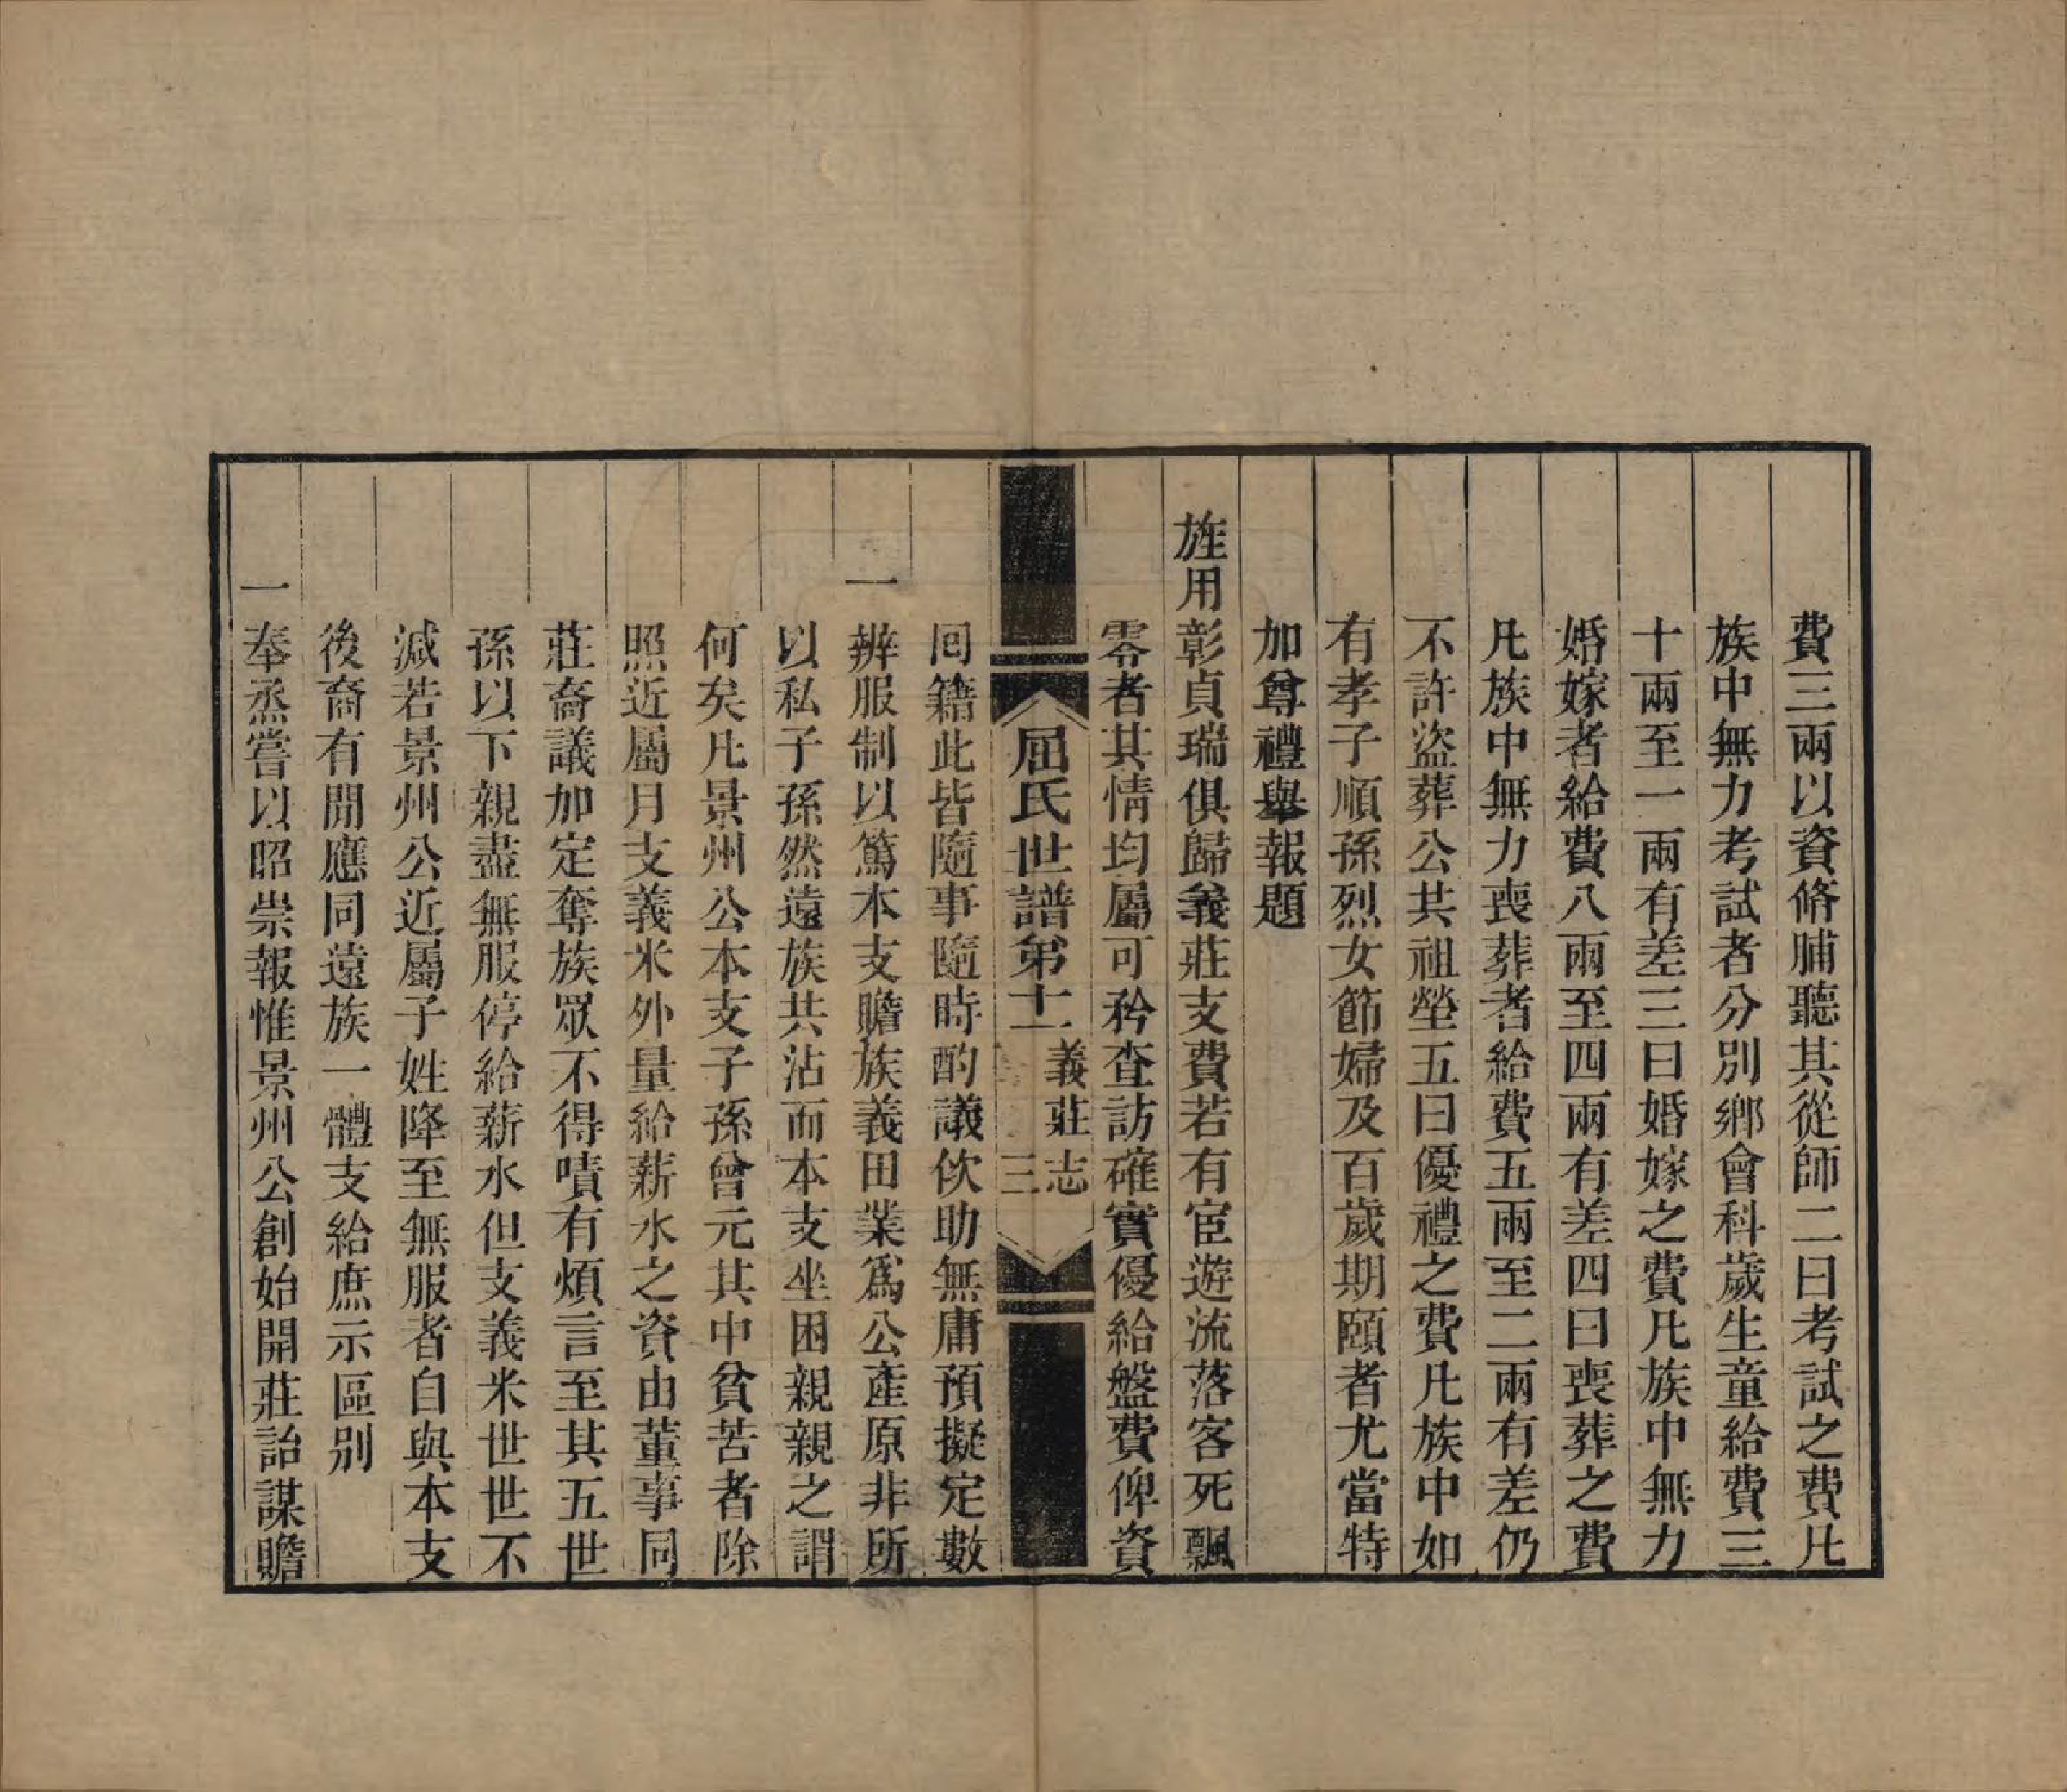 費三兩以資脩脯聽其從師二曰考試之費凡
族中無力考試者分別鄉會科歲生童給費三
十兩至一兩有差三曰婚嫁之費凡族中無力
婚嫁者給費八兩至四兩有差四曰喪葬之費
凡族中無力喪葬者給費五兩至二兩有差仍
不許盜葬公共祖塋五曰優禮之費凡族中如
有孝子順孫烈女節婦及百歲期頤者尤當特
加尊禮舉報題
旌用彰貞瑞俱歸義莊支費若有宦遊流落客死飄
零者其情均屬可矜查訪確實優給盤費俾資
屈氏世譜第十一 義莊志 三
囘籍此皆隨事隨時酌議佽助無庸預擬定數
一辨服制以篤本支贍族義田業爲公產原非所
以私子孫然遠族共沾而本支坐困親親之謂
何矣凡景州公本支子孫曾元其中貧苦者除
照近屬月支義米外量給薪水之資由董事同
莊裔議加定奪族眾不得嘖有煩言至其五世
孫以下親盡無服停給薪水但支義米世世不
減若景州公近屬子姓降至無服者自與本支
後裔有閒應同遠族一體支給庶示區别
一奉烝嘗以昭崇報惟景州公創始開莊詒謀贍